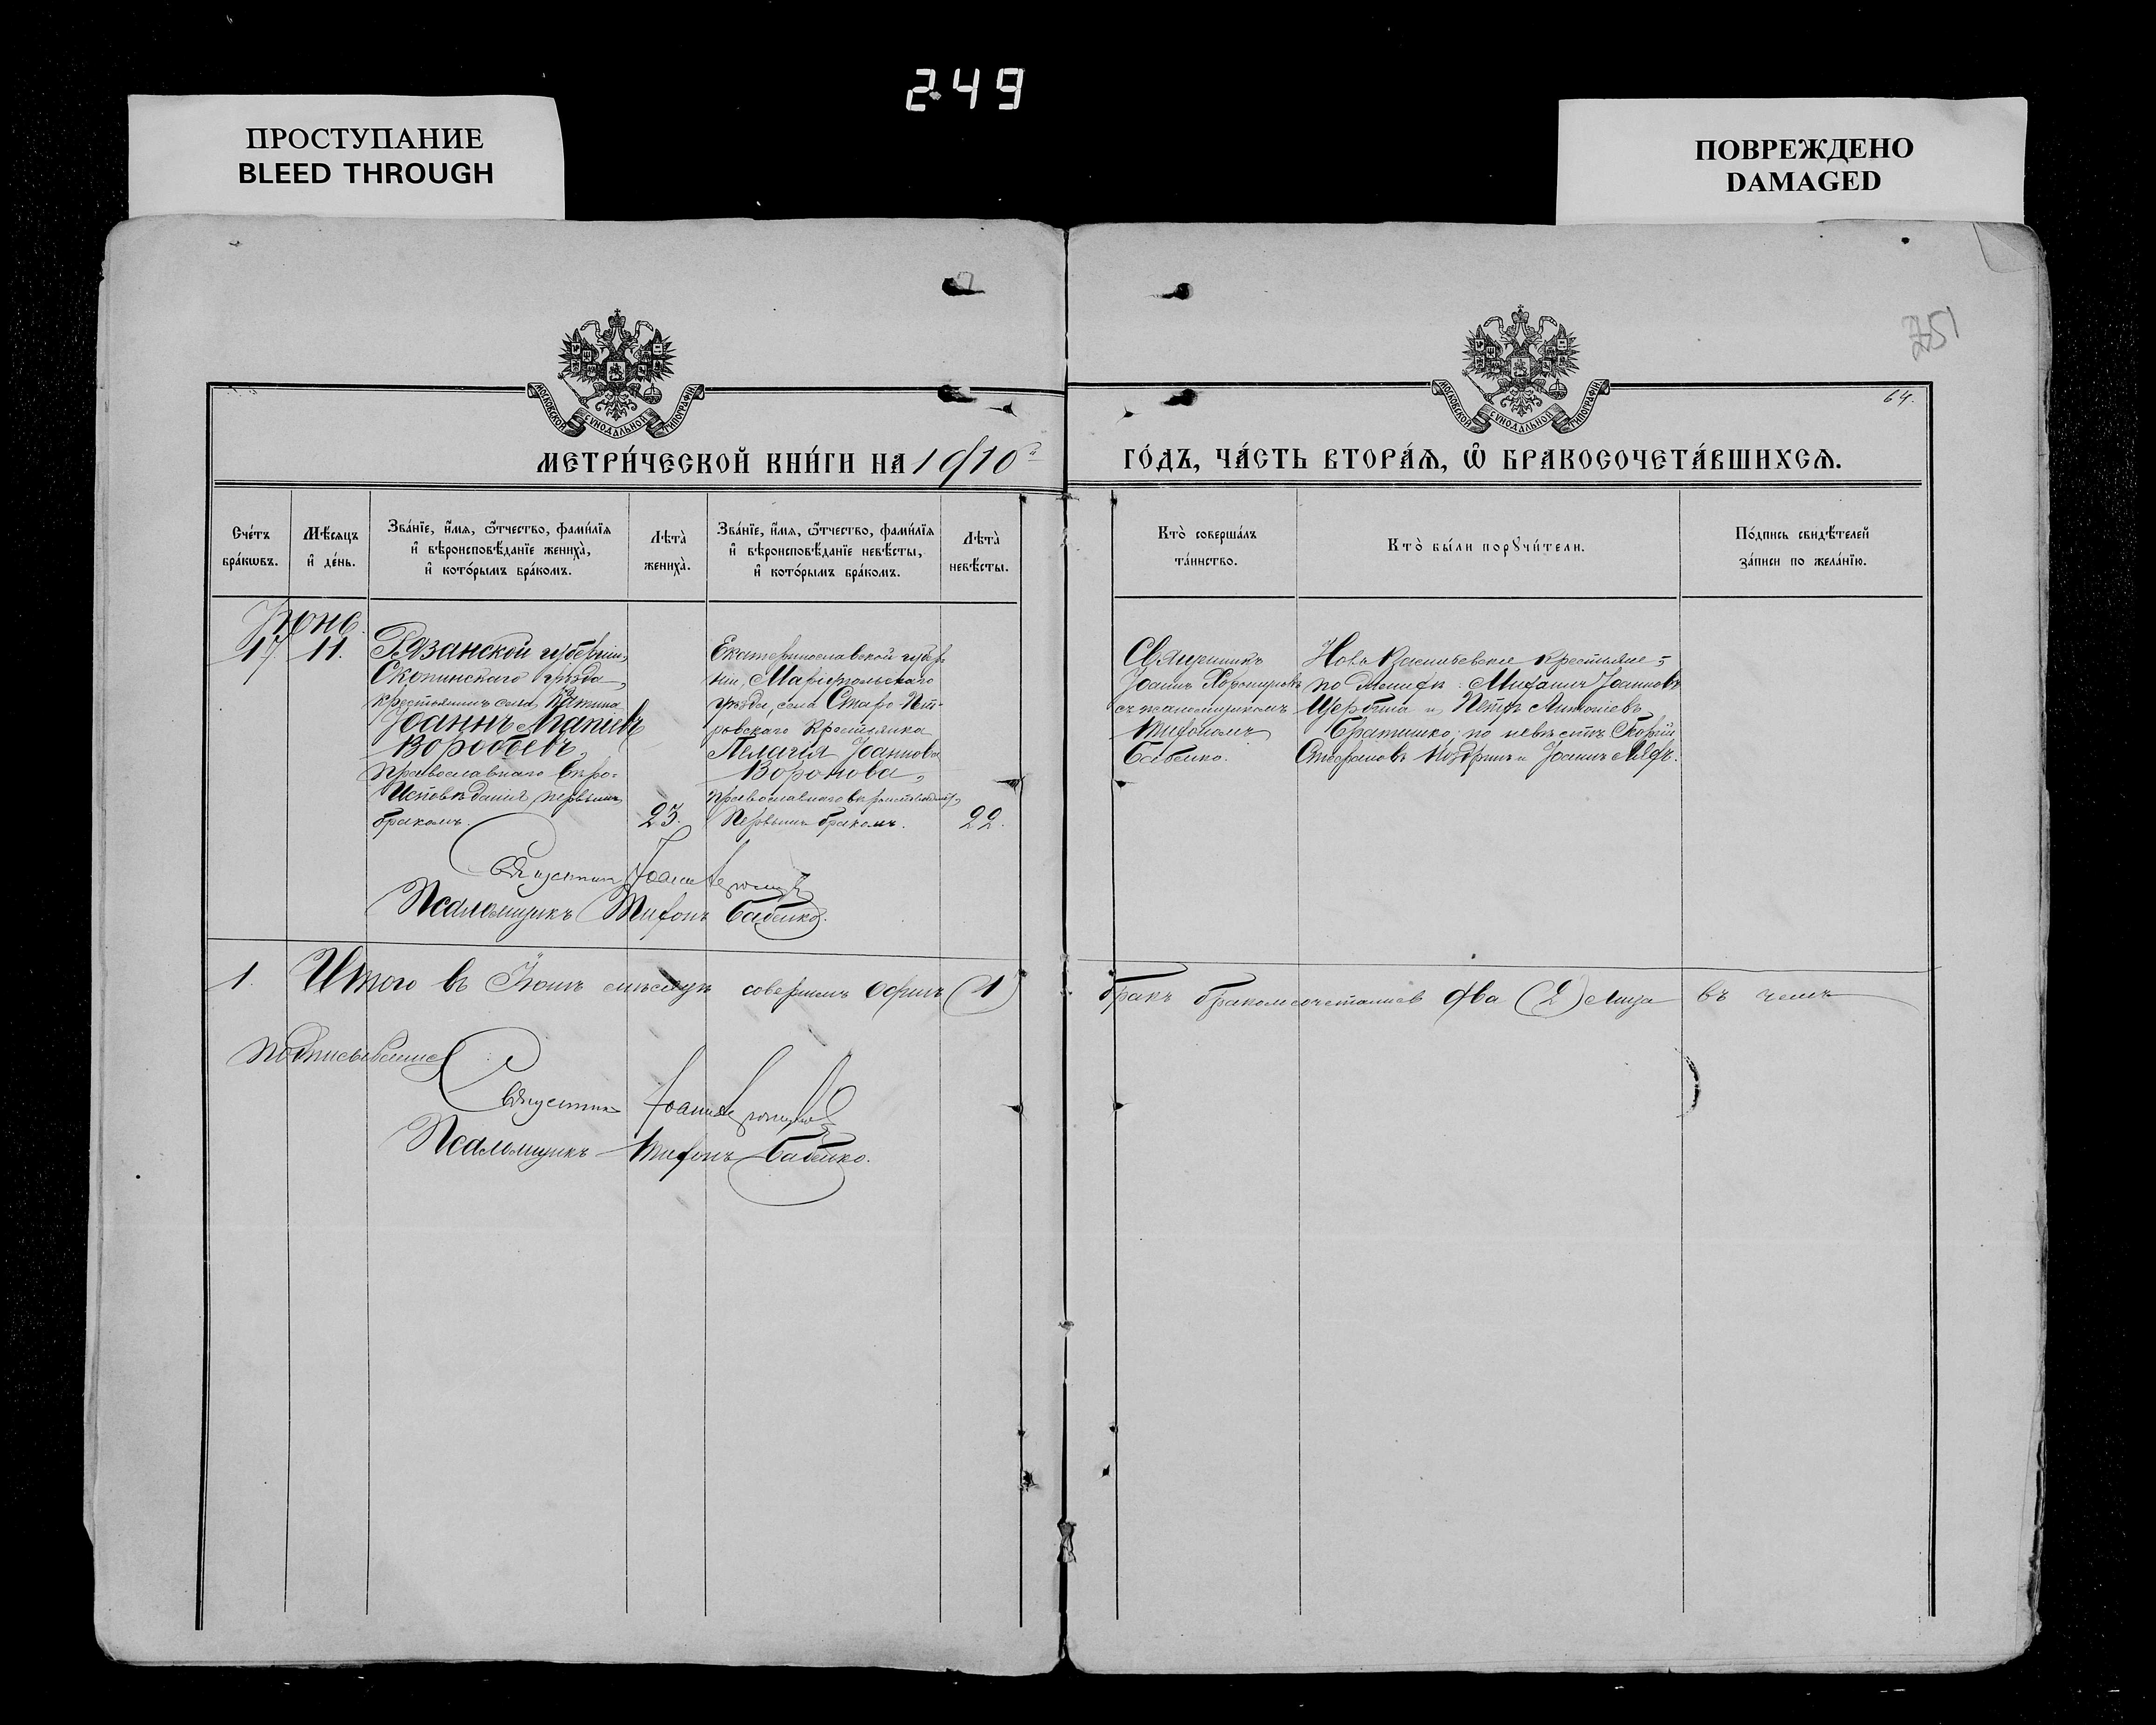 249
ПРОСТУПАНИЕ
BLEED THROUGH
ПОВРЕЖДЕНО
DAMAGED
251
64.
МОСКОВСКОЙ СѴНОДАЛЬНОЙ ТИПОГРАФІИ
МОСКОВСКОЙ СѴНОДАЛЬНОЙ ТИПОГРАФІИ
МЕТРИ́ЧЕСКОЙ КНИ́ГИ НА 1910й
ГО́ДЪ, ЧА́СТЬ ВТОРА́Ѧ, Ѡ҆ БРАКОСОЧЕТА́ВШИХСѦ.
Сче́тъ
бра́кѡвъ.
Мѣ́сяцъ
и҆ де́нь.
Зва́нїе, и҆́мя, ѻ҆́тчество, фами́лїя
и҆ вѣроисповѣ́данїе жениха̀,
и҆ кото́рымъ бра́комъ.
Лѣта̀
жениха̀.
Зва́нїе, и҆́мя, ѻ҆́тчество, фами́лїя
и҆ вѣроисповѣ́данїе невѣ́сты,
и҆ кото́рымъ бра́комъ.
Лѣта̀
невѣ́сты.
Кто̀ соверша́лъ
та́инство.
Кто̀ бы́ли порꙋчи́тели.
По́дпись свидѣ́телей
за́писи по жела́нїю.
Іюнь.
17. 11.
Рязанской губерніи,
Скопинскаго уѣзда,
крестьянинъ села
Іоаннъ
Воробьевъ,
православнаго вѣро-
исповѣданія, первымъ
бракомъ.
23.
Екатеринославской губер
ніи, Маріупольскаго
уѣзда, села Старо-Пет-
ровскаго крестьянка
Пелагія Іоаннова
Воронова,
православнаго вѣроисповѣданія,
первымъ бракомъ.
22.
Священникъ
Іоаннъ Хорошуновъ
съ псаломщикомъ
Трифономъ
Бабенко.
Ново Васильевскіе крестьяне;
по женихѣ: Іоанновъ
Щербина и Петръ Антоніевъ
Братишко; по невѣстѣ
Стефановъ и Іоаннъ
Священникъ Іоаннъ
Псаломщикъ Трифонъ Бабенко.
1. Итого въ Іюнѣ мѣсяцѣ совершенъ одинъ (1)
бракъ бракомъ сочетались два (2) лица въ чемъ
подписываемся:
Священникъ Іоаннъ
Псаломщикъ Трифонъ Бабенко.